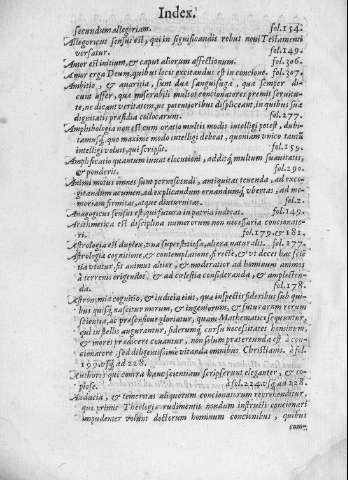 Index.
secundum allegoriam. fol.154.
Allegoricus sensus est, qui in significandis rebus noui Testamenti
versatur. fol.149.
Amor est initium, & caput aliarum affectionum. fol.306.
Amor erga Deum, quibus locis excitandus est in concione. fol.307.
Ambitio, & auaritia, sunt duæ sanguisugæ, quæ semper dicunt
affer, quæ miserabili multos concionatores premit seruitute,
ne dicant veritatem, ne potentioribus displiceant, in quibus suæ
dignitatis præsidia collocarunt. fol.277.
Amphibologia non est cum oratio multis modis intelligi potest, dubitamusq́,
quo maxime modo intelligi debeat, quoniam vnico tantũ
intelligi voluit, qui scripsit. fol.159.
Amplificatio quantum iuuat elocutioni, additq́, multum suauitatis,
& ponderis. fol.290.
Animi motus omnes sunt peruoscendi, antiquitas tenenda, ad excogitandum
acumen, ad explicandum ornandumq́, vbertas, ad memoriam
firmitas, atque diuturnitas. fol.2.
Anagogicus sensus est, qui futura in patria indicat. fol.149.
Arithmetica est disciplina numerorum non necessaria concionatori.
fol.179.& 181.
Astrologia est duplex, vna superstitiosa, altera naturalis. fol.277.
Astrologia cognitione, & contemplatione, si recte, & vt decet hac scientia
vtatur, fit animus altior, & moderatior ad hominum animos
à terrenis erigendos & ad cœlestia consideranda, & amplectenda.
fol.178.
Astronomiæ cognitio, & iudicia eius, qua inspectis sideribus sub quibus
quisq́, nascitur morum, & ingeniorum, & futurarum rerum
scientia, ac præsensione gloriatur, quam Mathematici sequuntur,
qui in stellis augurantur, siderumq́, cursu necessitates hominum,
& mores prædicere conantur, non solum prætereunda est à concionatore,
sed diligentissime vitanda omnibus Christianis. à fol.
199. vsq́, ad 228.
Authores qui contra hanc scientiam scripserunt eleganter, & copiose.
à fol.224. vsq́, ad 228.
Audacia, & temeritas aliquorum concionatorum reprehenditur,
qui primis Theologiæ rudimentis nondum instructi concionari
impudenter volunt doctorum hominum concionibus, quibus